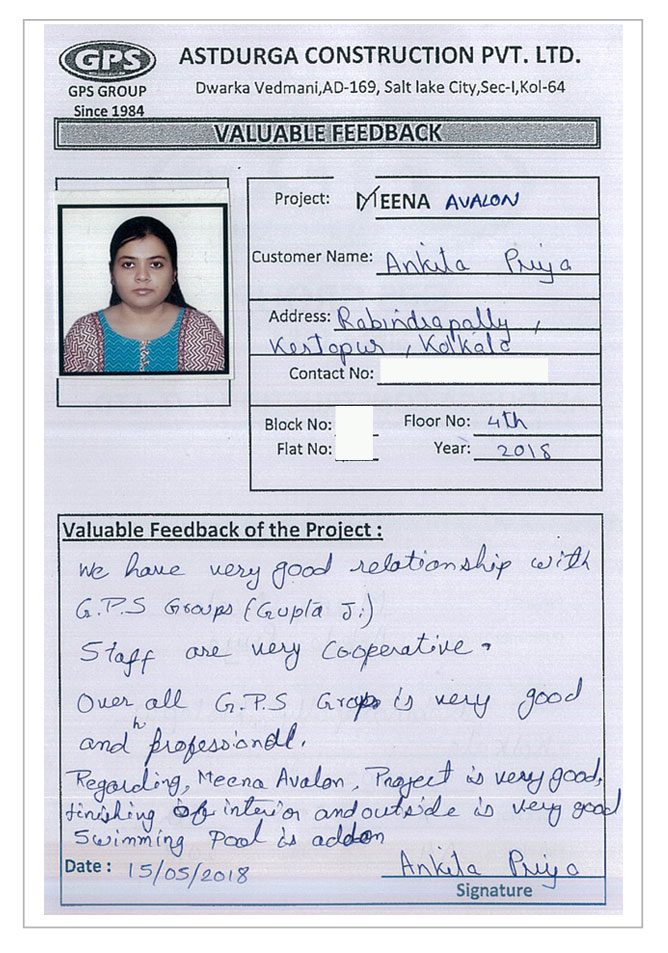 GPS
GPS GROUP
Since 1984
ASTDURGA CONSTRUCTION PVT. LTD.
Dwarka Vedmani,AD-169, Salt lake City,Sec-I,Kol-64
VALUABLE FEEDBACK
Project: MEENA AVALON
Customer Name: Ankita Priya
Address: Rabindrapally,
Kestopur, Kolkata
Contact No:
Block No: Floor No: 4th
Flat No: Year: 2018
Valuable Feedback of the Project :
We have very good relationship with
G.P.S Groups (Gupta Ji)
Staff are very cooperative.
Over all G.P.S Group is very good
and professional.
Regarding, Meena Avalon, Project is very good,
finishing of interior and outside is very good
Swimming Pool is addon
Date : 15/05/2018 Ankita Priya
Signature